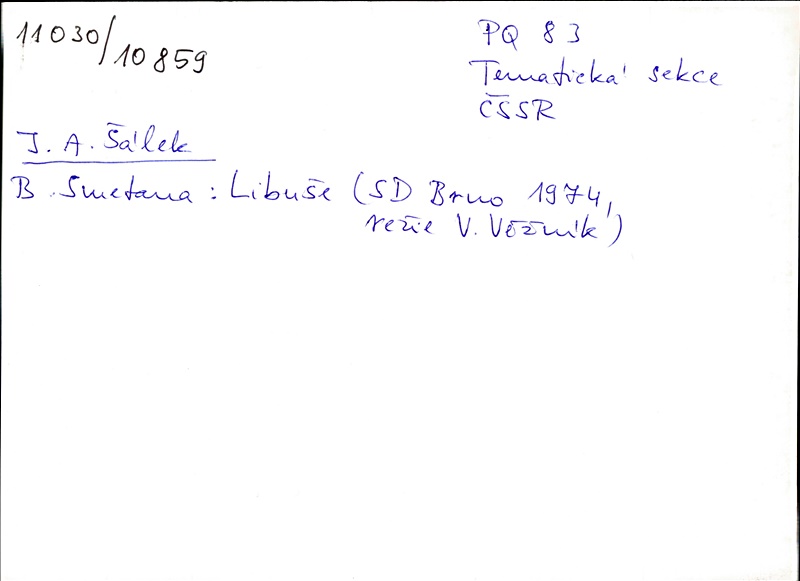 11030/10859
PQ 83
Tematická sekce
ČSSR
J. A. Šálek
B. Smetana: Libuše (SD Brno 1974,
režie V. Věžník)